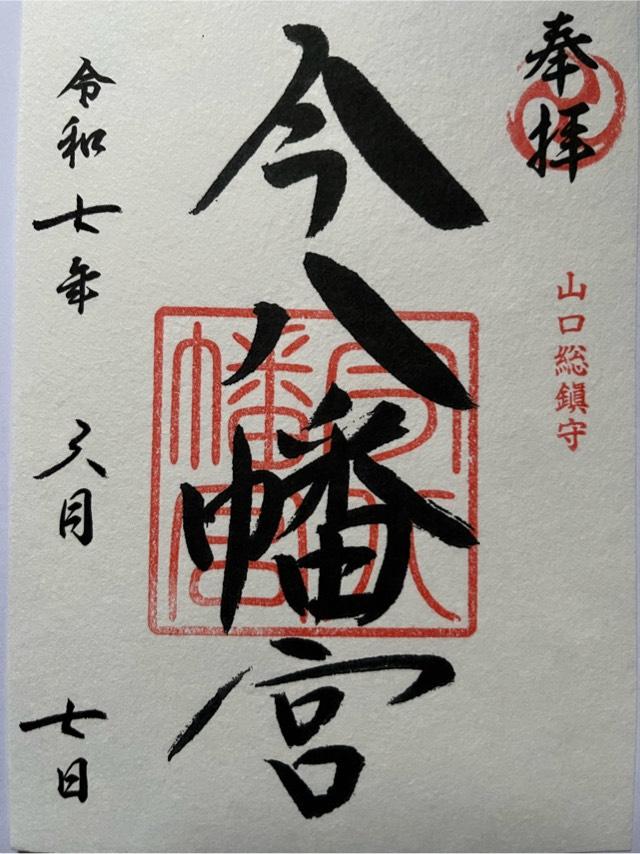 奉拝
山口総鎮守
今八幡宮
今八幡宮
令和七年 六月 七日